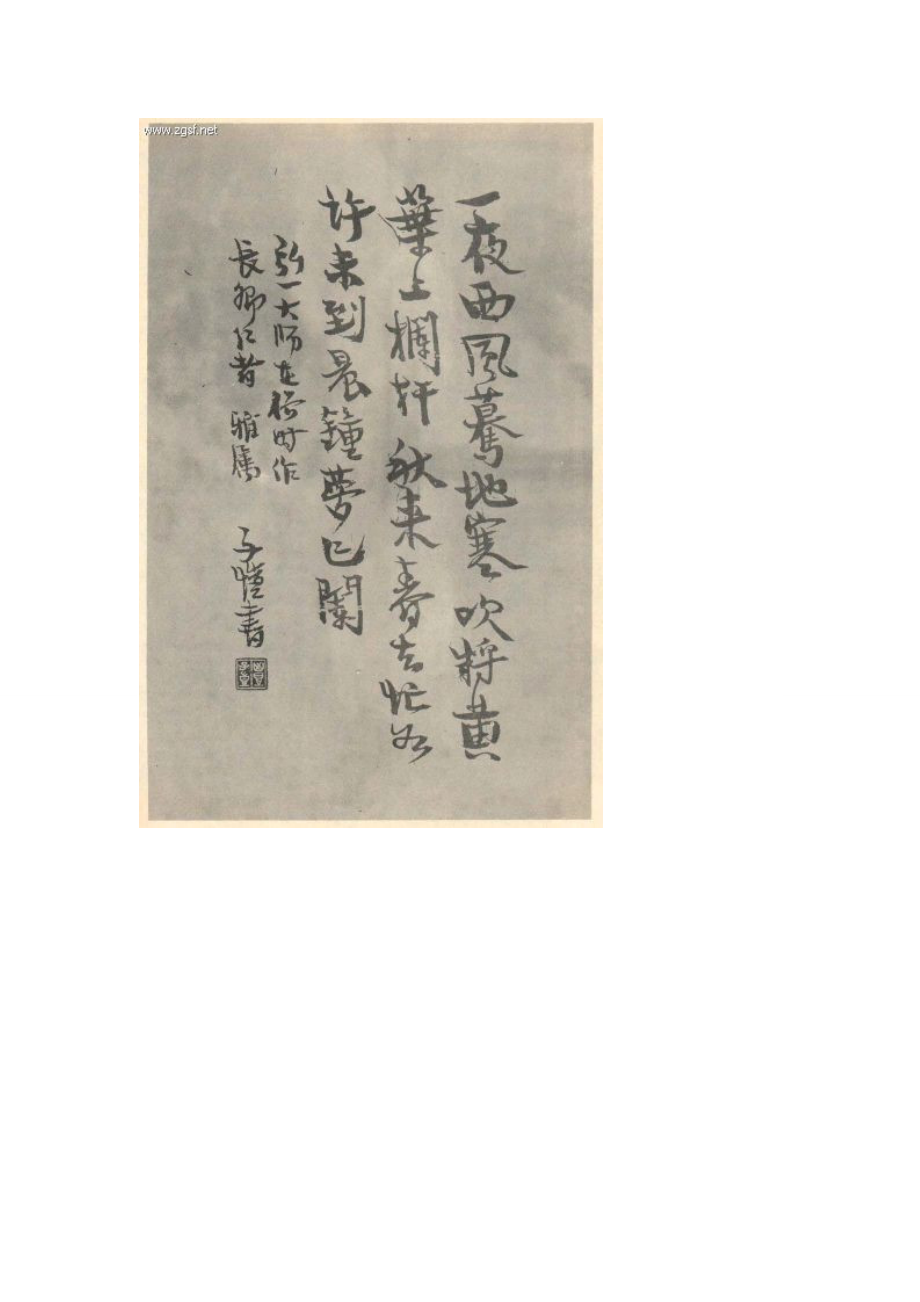 www.zgsf.net
一夜西風驀地寒吹将黄
葉上欄杆秋来春去忙如
許未到晨鐘夢已闌
弘一大师在俗时作
長卿仁者 雅属
子愷書